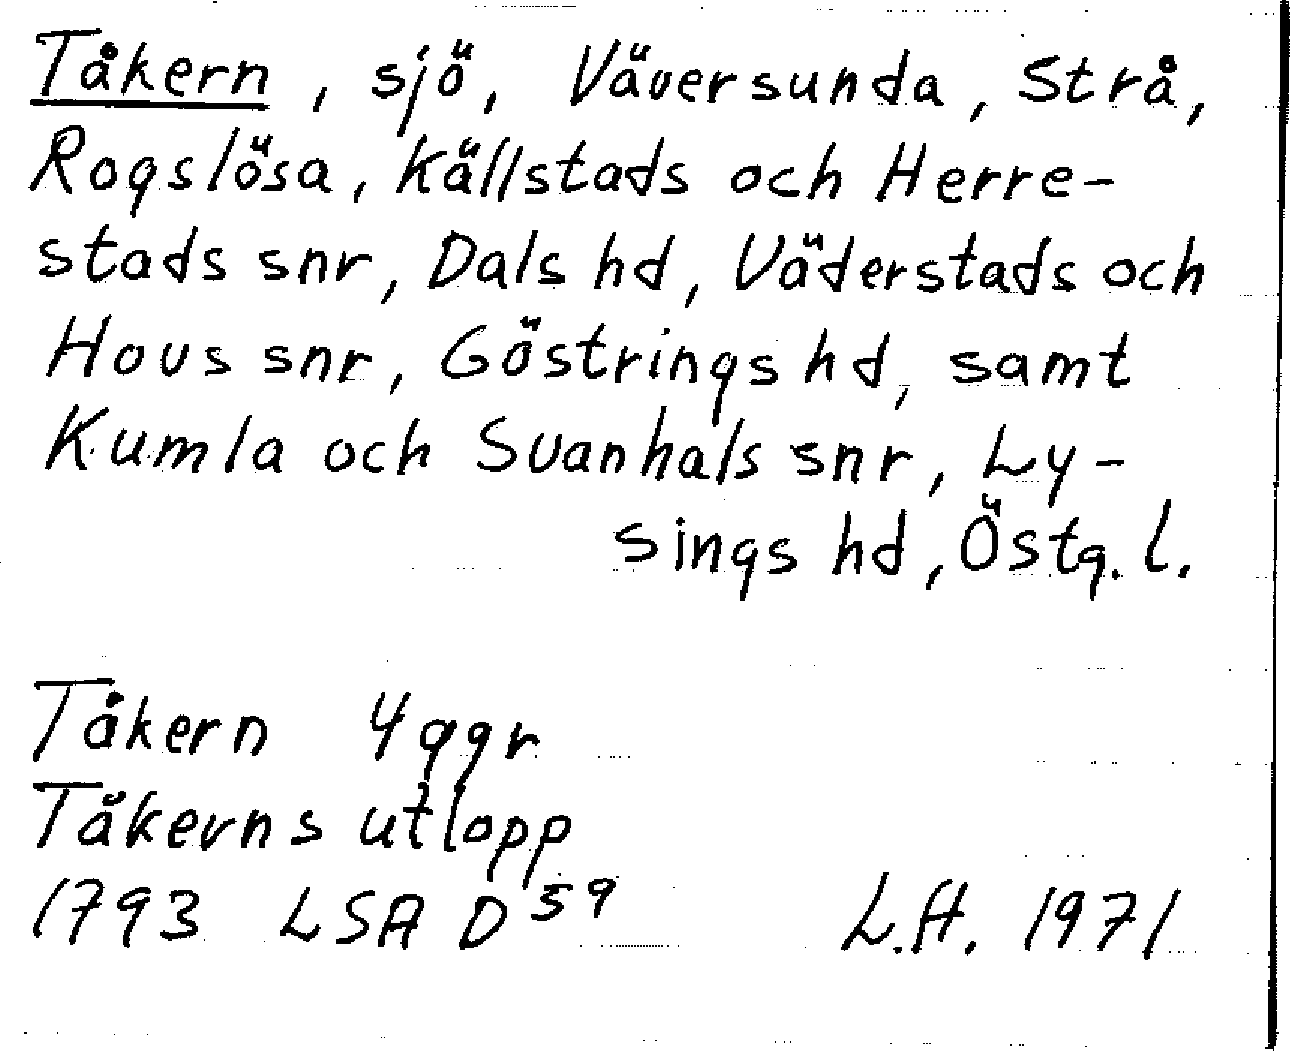 Tåkern, sjö, Väversunda, Strå,
Rogslösa, Källstads och Herre-
stads snr, Dals hd, Väderstads och
Hovs snr, Göstrings hd, samt
Kumla och Svanhals snr, Ly-
sings hd, Östg. l.
Tåkern 4 ggr
Tåkerns utlopp
1793 LSA D 59
L.H. 1971